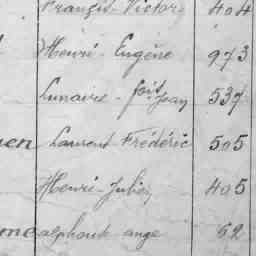 François-Victor 404
Henri-Eugène 973
Lunaire-fois Jean 537
en Laurent-Frédéric 505
Henri-Julien 405
me alphonse ange 52